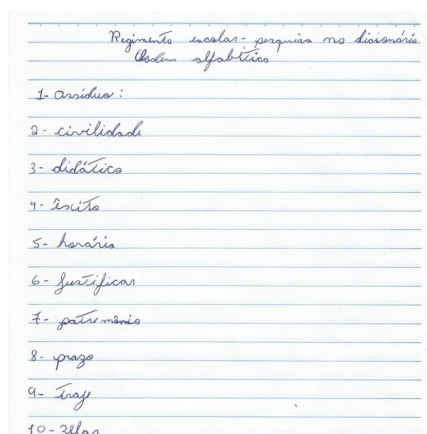 Regimento escolar - pesquisa no dicionário
Ordem alfabética
1- assíduo:
2- civilidade
3- didático
4- êxito
5- horário
6- justificar
7- patrimônio
8- prazo
9- traje
10- zelar